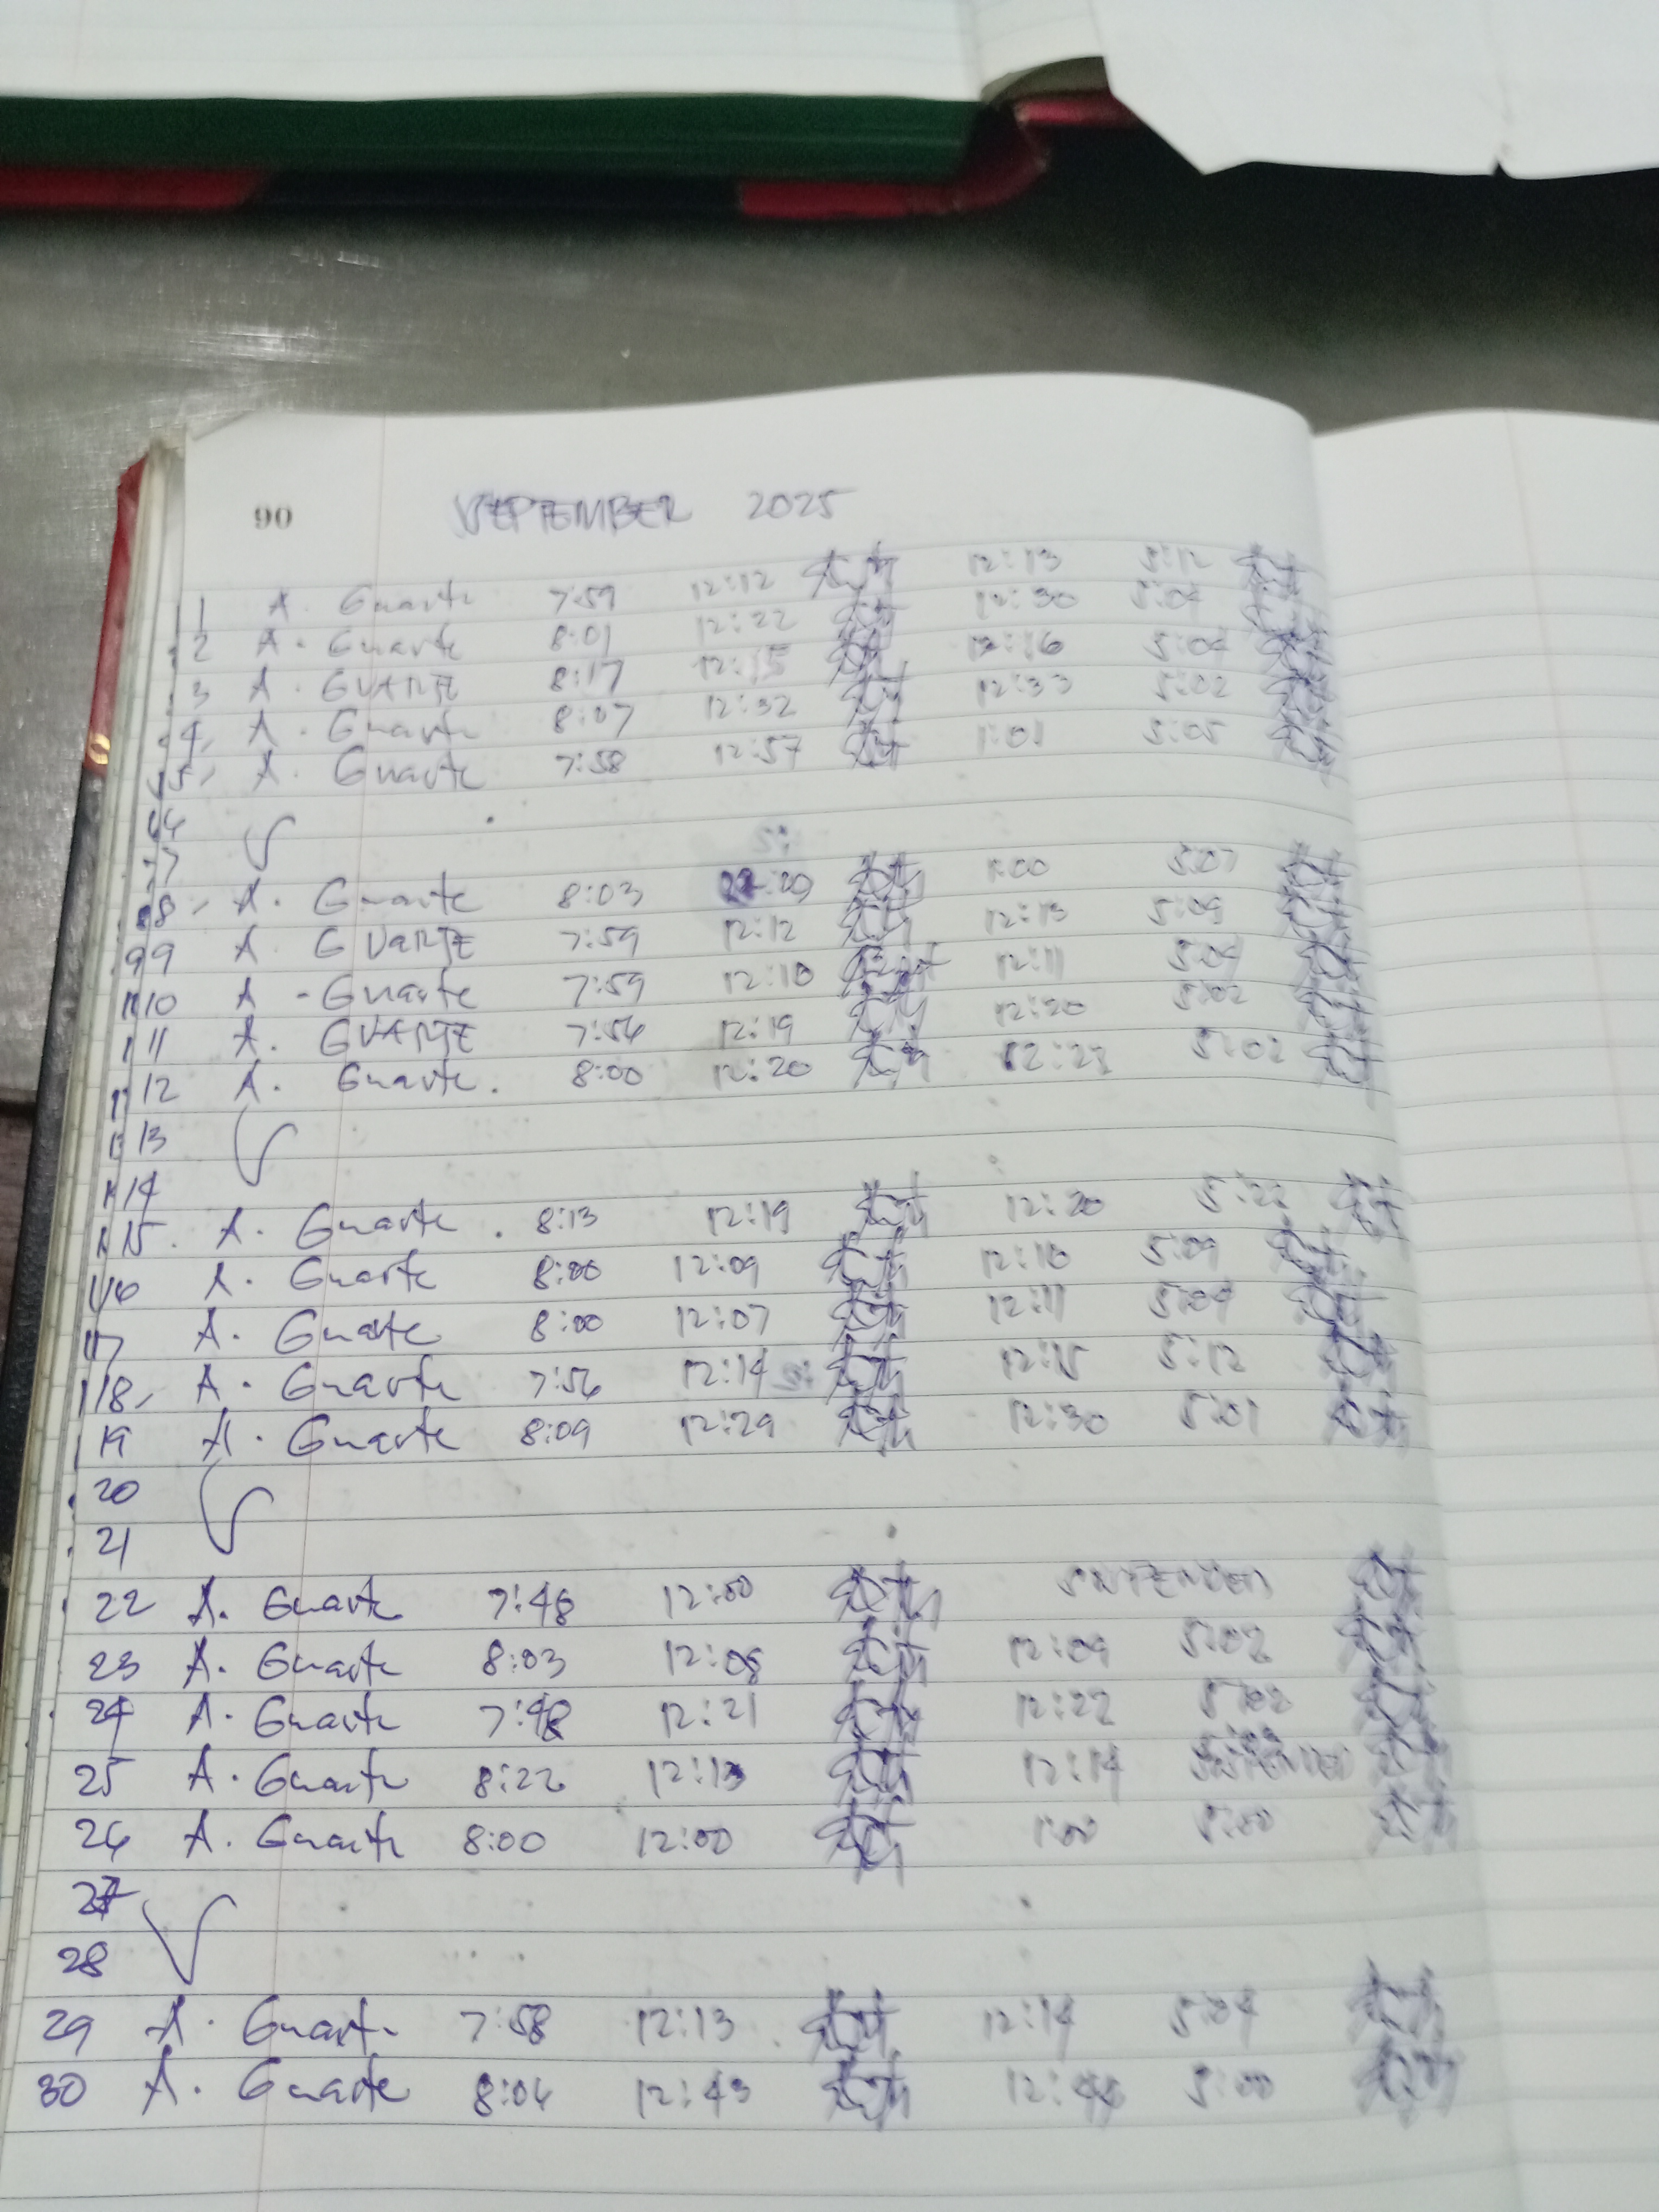 90 SEPTEMBER 2025
1 A. Guarte 7:59 12:12 12:13 5:12
2 A. Guarte 8:01 12:22 12:30 5:04
3 A. GUARTE 8:17 12:15 12:16 5:04
4, A. Guarte 8:07 12:32 12:33 5:02
5, A. Guarte 7:58 12:57 1:01 5:05
6
7
8, A. Guarte 8:03 1:00 5:07
9 A GUARTE 7:59 12:12 12:13 5:09
10 A - Guarte 7:59 12:10 12:11 5:04
11 A. GUARTE 7:56 12:19 12:20 5:02
12 A. Guarte. 8:00 12:20 5:02
13
14
15. A. Guarte. 8:13 12:19 12:20 5:22
16 A. Guarte 8:00 12:09 12:10 5:09
17 A. Guarte 8:00 12:07 12:11 5:09
18, A. Guarte 7:56 12:14 12:15 5:12
19 A. Guarte 8:09 12:29 12:30 5:01
20
21
22 A. Guarte 7:48 12:00 SUSPENDED
23 A. Guarte 8:03 12:08 12:09 5:02
24 A. Guarte 7:48 12:21 12:22 5:02
25 A. Guarte 8:22 12:13 12:14 SUSPENDED
26 A. Guarte 8:00 12:00 1:00 5:00
27
28
29 A. Guarte 7:58 12:13 12:14 5:04
30 A. Guarte 8:06 12:43 12:44 5:00